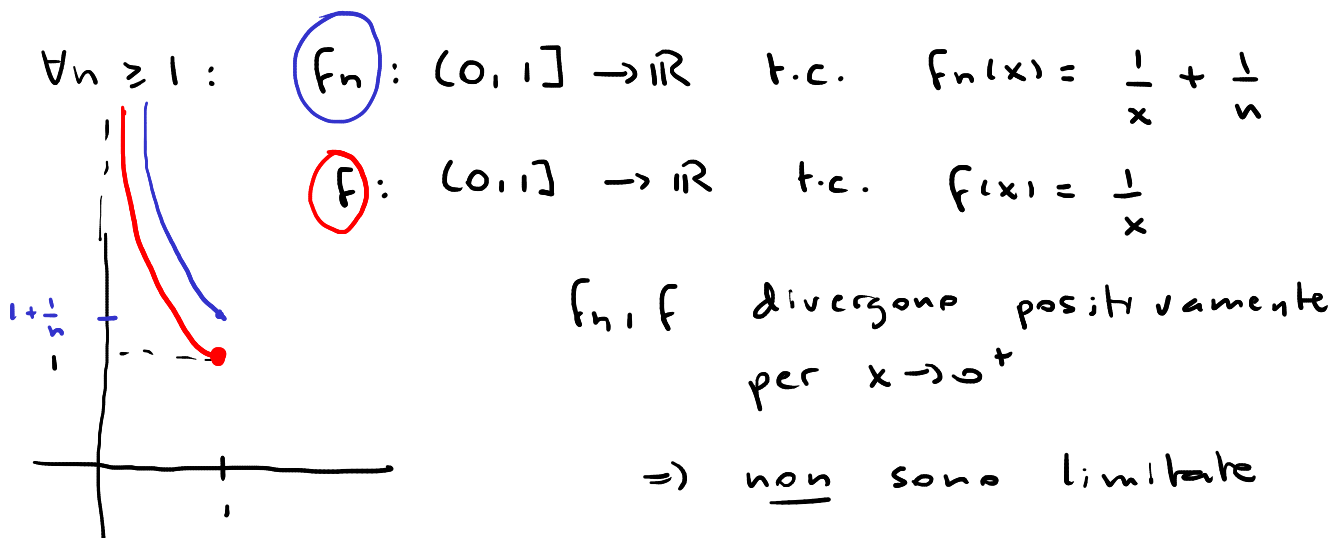 ∀n ⩾ 1 : fn : (0, 1] → ℝ t.c. fn(x) = 1/x + 1/n
f : (0, 1] → ℝ t.c. f(x) = 1/x
fn, f divergono positivamente
per x → 0⁺
⇒ non sono limitate
1 + 1/n
1
1